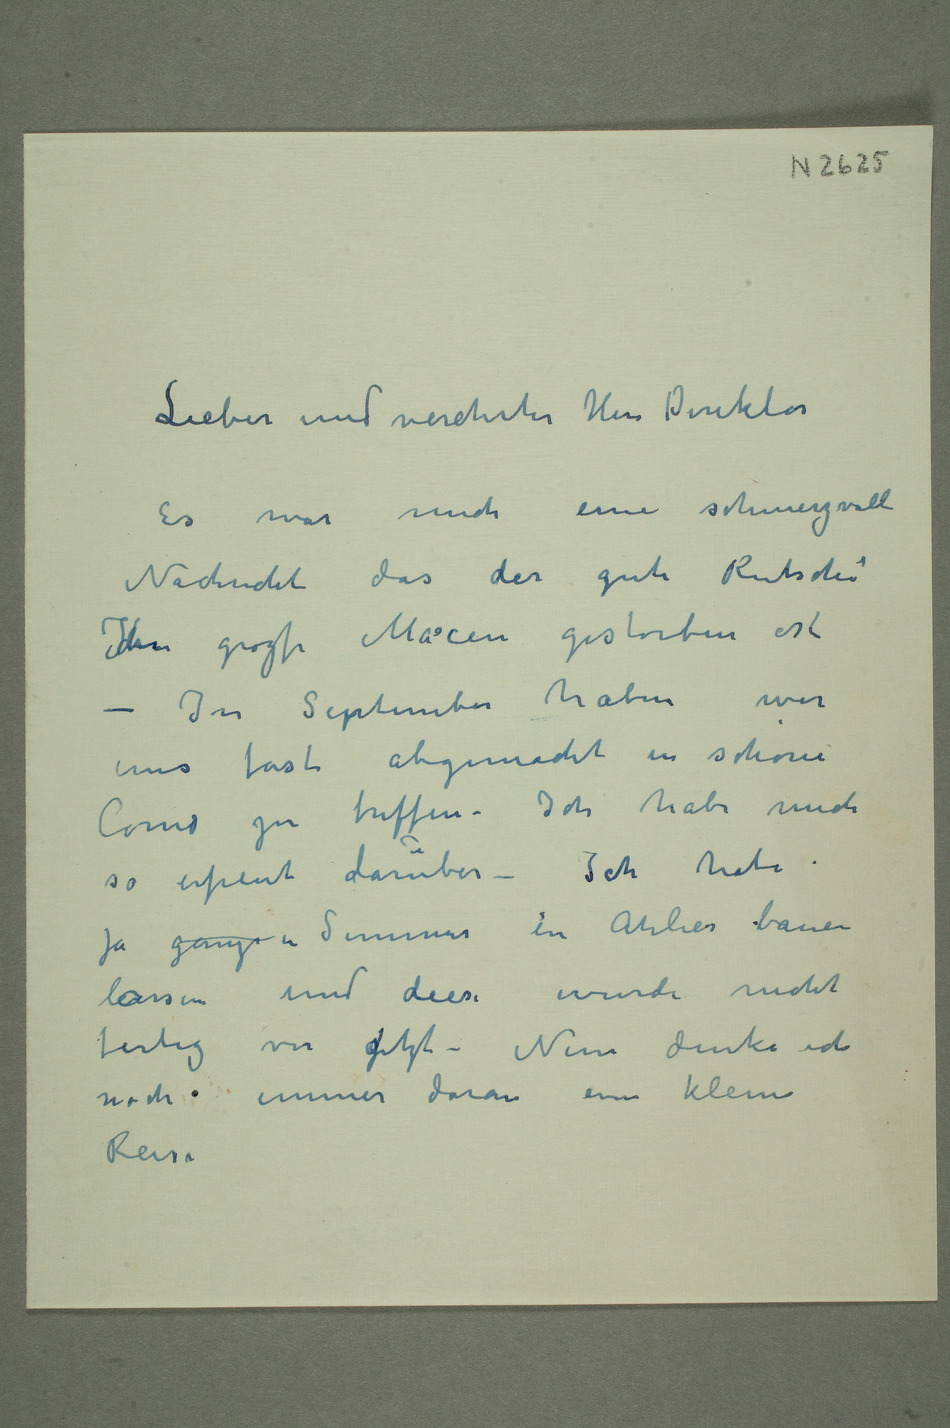 N 2625
Lieber und verehrter Herr Direktor
Es war mich eine schmerzvoll
Nachricht das der gute Rütschi
Ihr große Mäcen gestorben ist
– In September haben wir
uns fast abgemacht in schöne
Como zu treffen – Ich habe mich
so erfreut darüber – Ich hate
ja ganze n Summer in Atelier bauen
lassen und diese wurde nicht
fertig vor jetzt – Nun denke ich
noch immer daran eine kleine
Reise